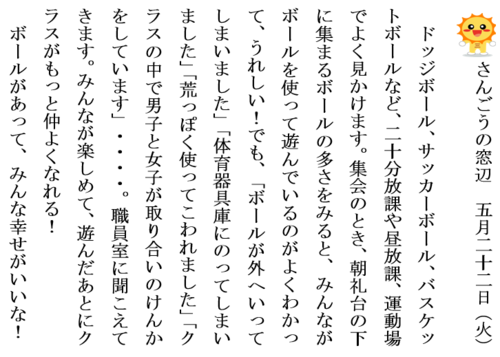 さんごうの窓辺　五月二十二日（火）
　ドッジボール、サッカーボール、バスケッ
トボールなど、二十分放課や昼放課、運動場
でよく見かけます。集会のとき、朝礼台の下
に集まるボールの多さをみると、みんなが
ボールを使って遊んでいるのがよくわかっ
て、うれしい！でも、「ボールが外へいって
しまいました」「体育器具庫にのってしまい
ました」「荒っぽく使ってこわれました」「ク
ラスの中で男子と女子が取り合いのけんか
をしています」・・・・。職員室に聞こえて
きます。みんなが楽しめて、遊んだあとにク
ラスがもっと仲よくなれる！
　ボールがあって、みんな幸せがいいな！